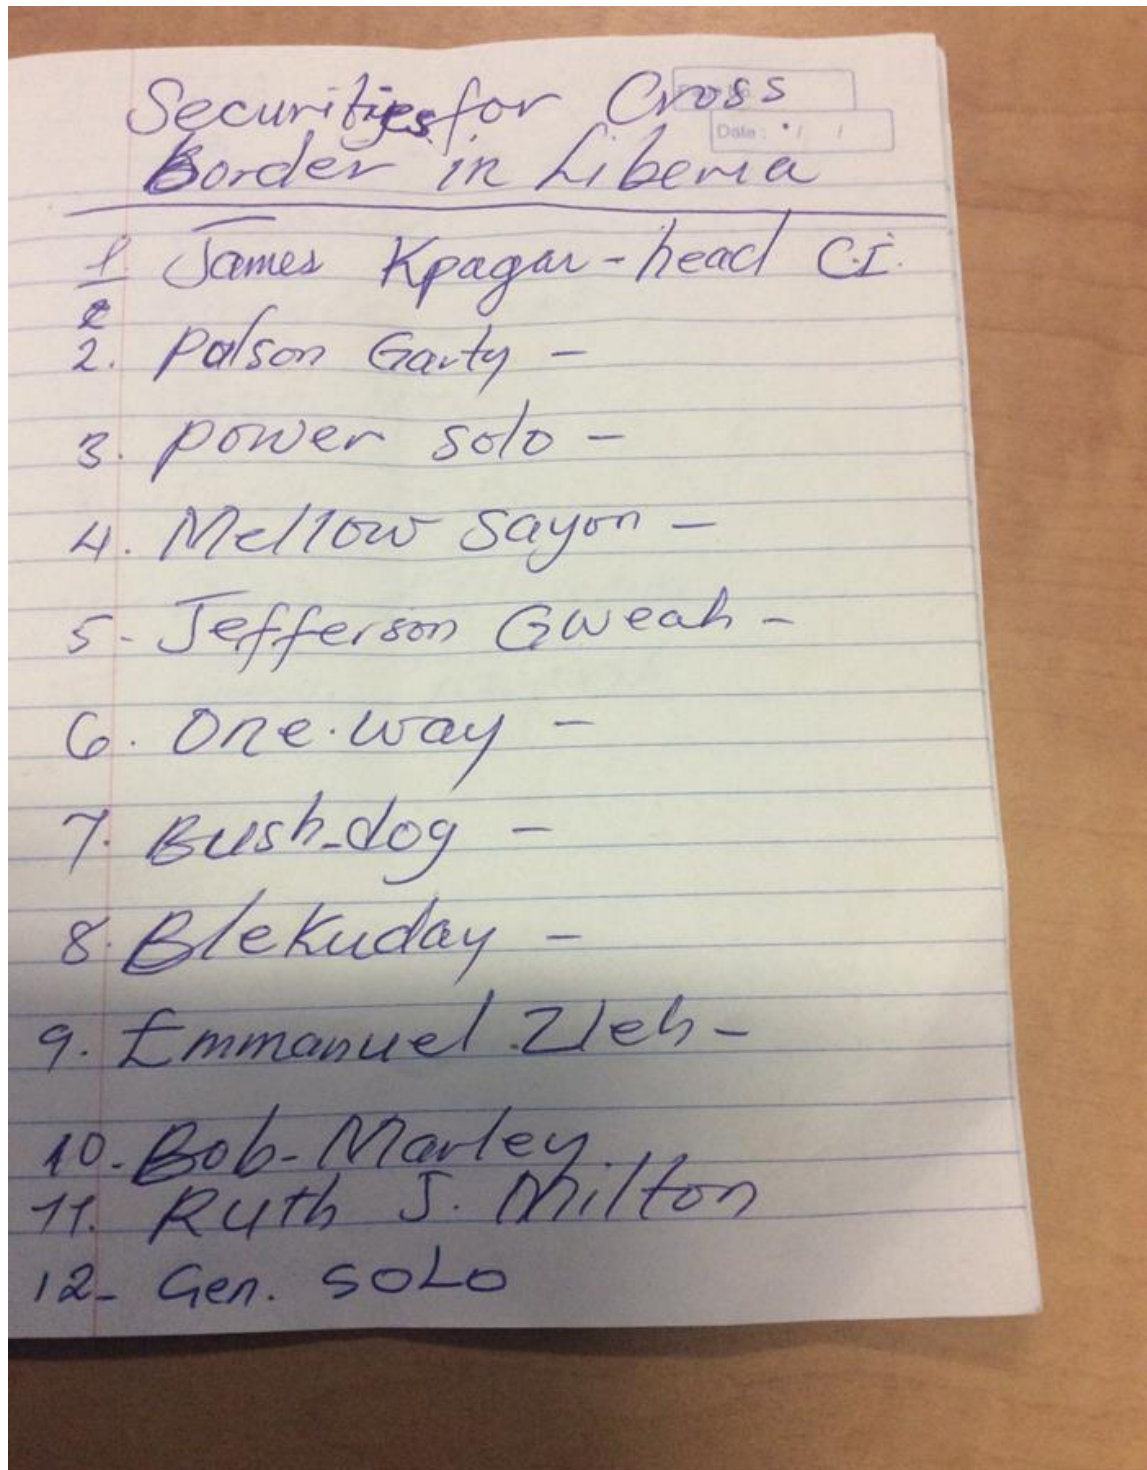 Securities for Cross
Date: / /
Border in Liberia
1 James Kpagar - head C.I.
2. Palson Garty -
3. power solo -
4. Mellow Sayon -
5- Jefferson Gweah -
6. One.way -
7. Bush-dog -
8. Blekuday -
9. Emmanuel Zleh -
10. Bob-Marley.
11. Ruth J. Milton
12- Gen. SOLO